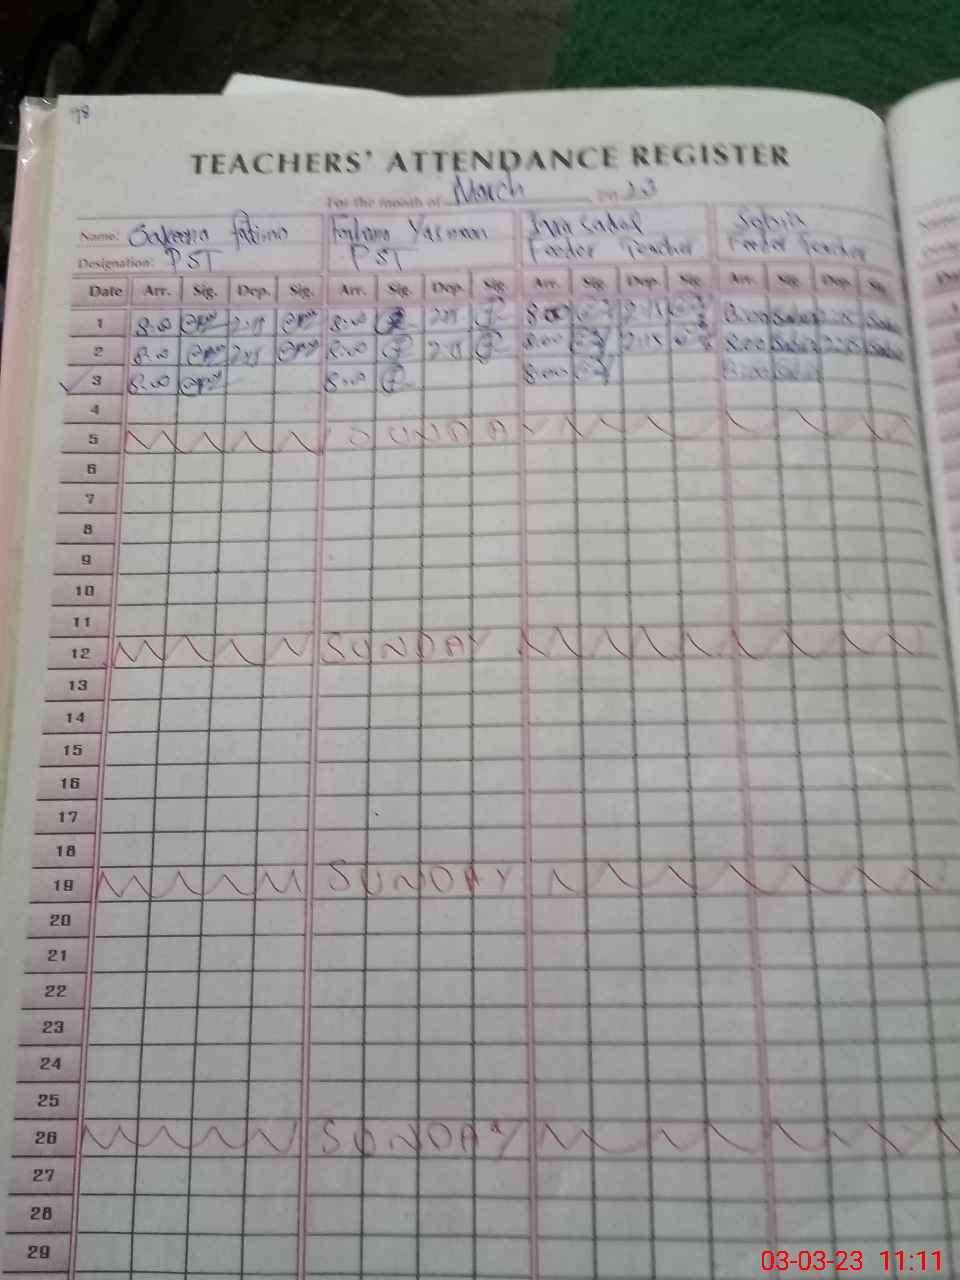 98
TEACHERS' ATTENDANCE REGISTER
For the month of March 23
Name: Sakeena fatima Fatima Yasmeen Sadaf Sabria
Designation: PST PST Feeder Teacher Feeder Teacher
Date Arr. Sig. Dep. Sig. Arr. Sig. Dep. Sig. Arr. Sig. Dep. Sig. Arr. Sig. Dep. Sig.
1 8:00 2:15 8:00 2:15 8:00 2:15 8:00 2:15
2 8:00 2:15 8:00 2:15 8:00 2:15 8:00 2:15
3 8:00 8:00 8:00 8:00
4
5 SUNDA
6
7
8
9
10
11
12 SUNDAY
13
14
15
16
17
18
19 SUNDAY
20
21
22
23
24
25
26 SUNDAY
27
28
29
03-03-23 11:11